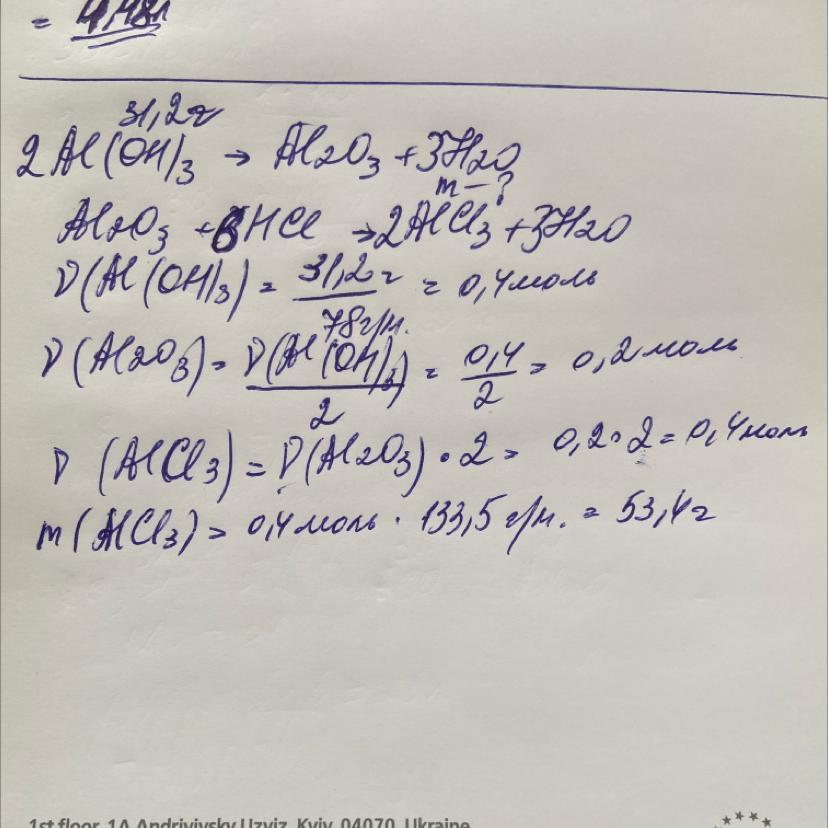 = 4,48л
31,2г
2Al(OH)3 → Al2O3 + 3H2O
m - ?
Al2O3 + 6HCl → 2AlCl3 + 3H2O
ν(Al(OH)3) = 31,2г / 78г/м. = 0,4моль
ν(Al2O3) = ν(Al(OH)3) / 2 = 0,4 / 2 = 0,2моль
ν(AlCl3) = ν(Al2O3) · 2 = 0,2 · 2 = 0,4моль
m(AlCl3) = 0,4моль · 133,5г/м. = 53,4г
1st floor, 1A Andriyivsky Uzviz, Kyiv, 04070, Ukraine